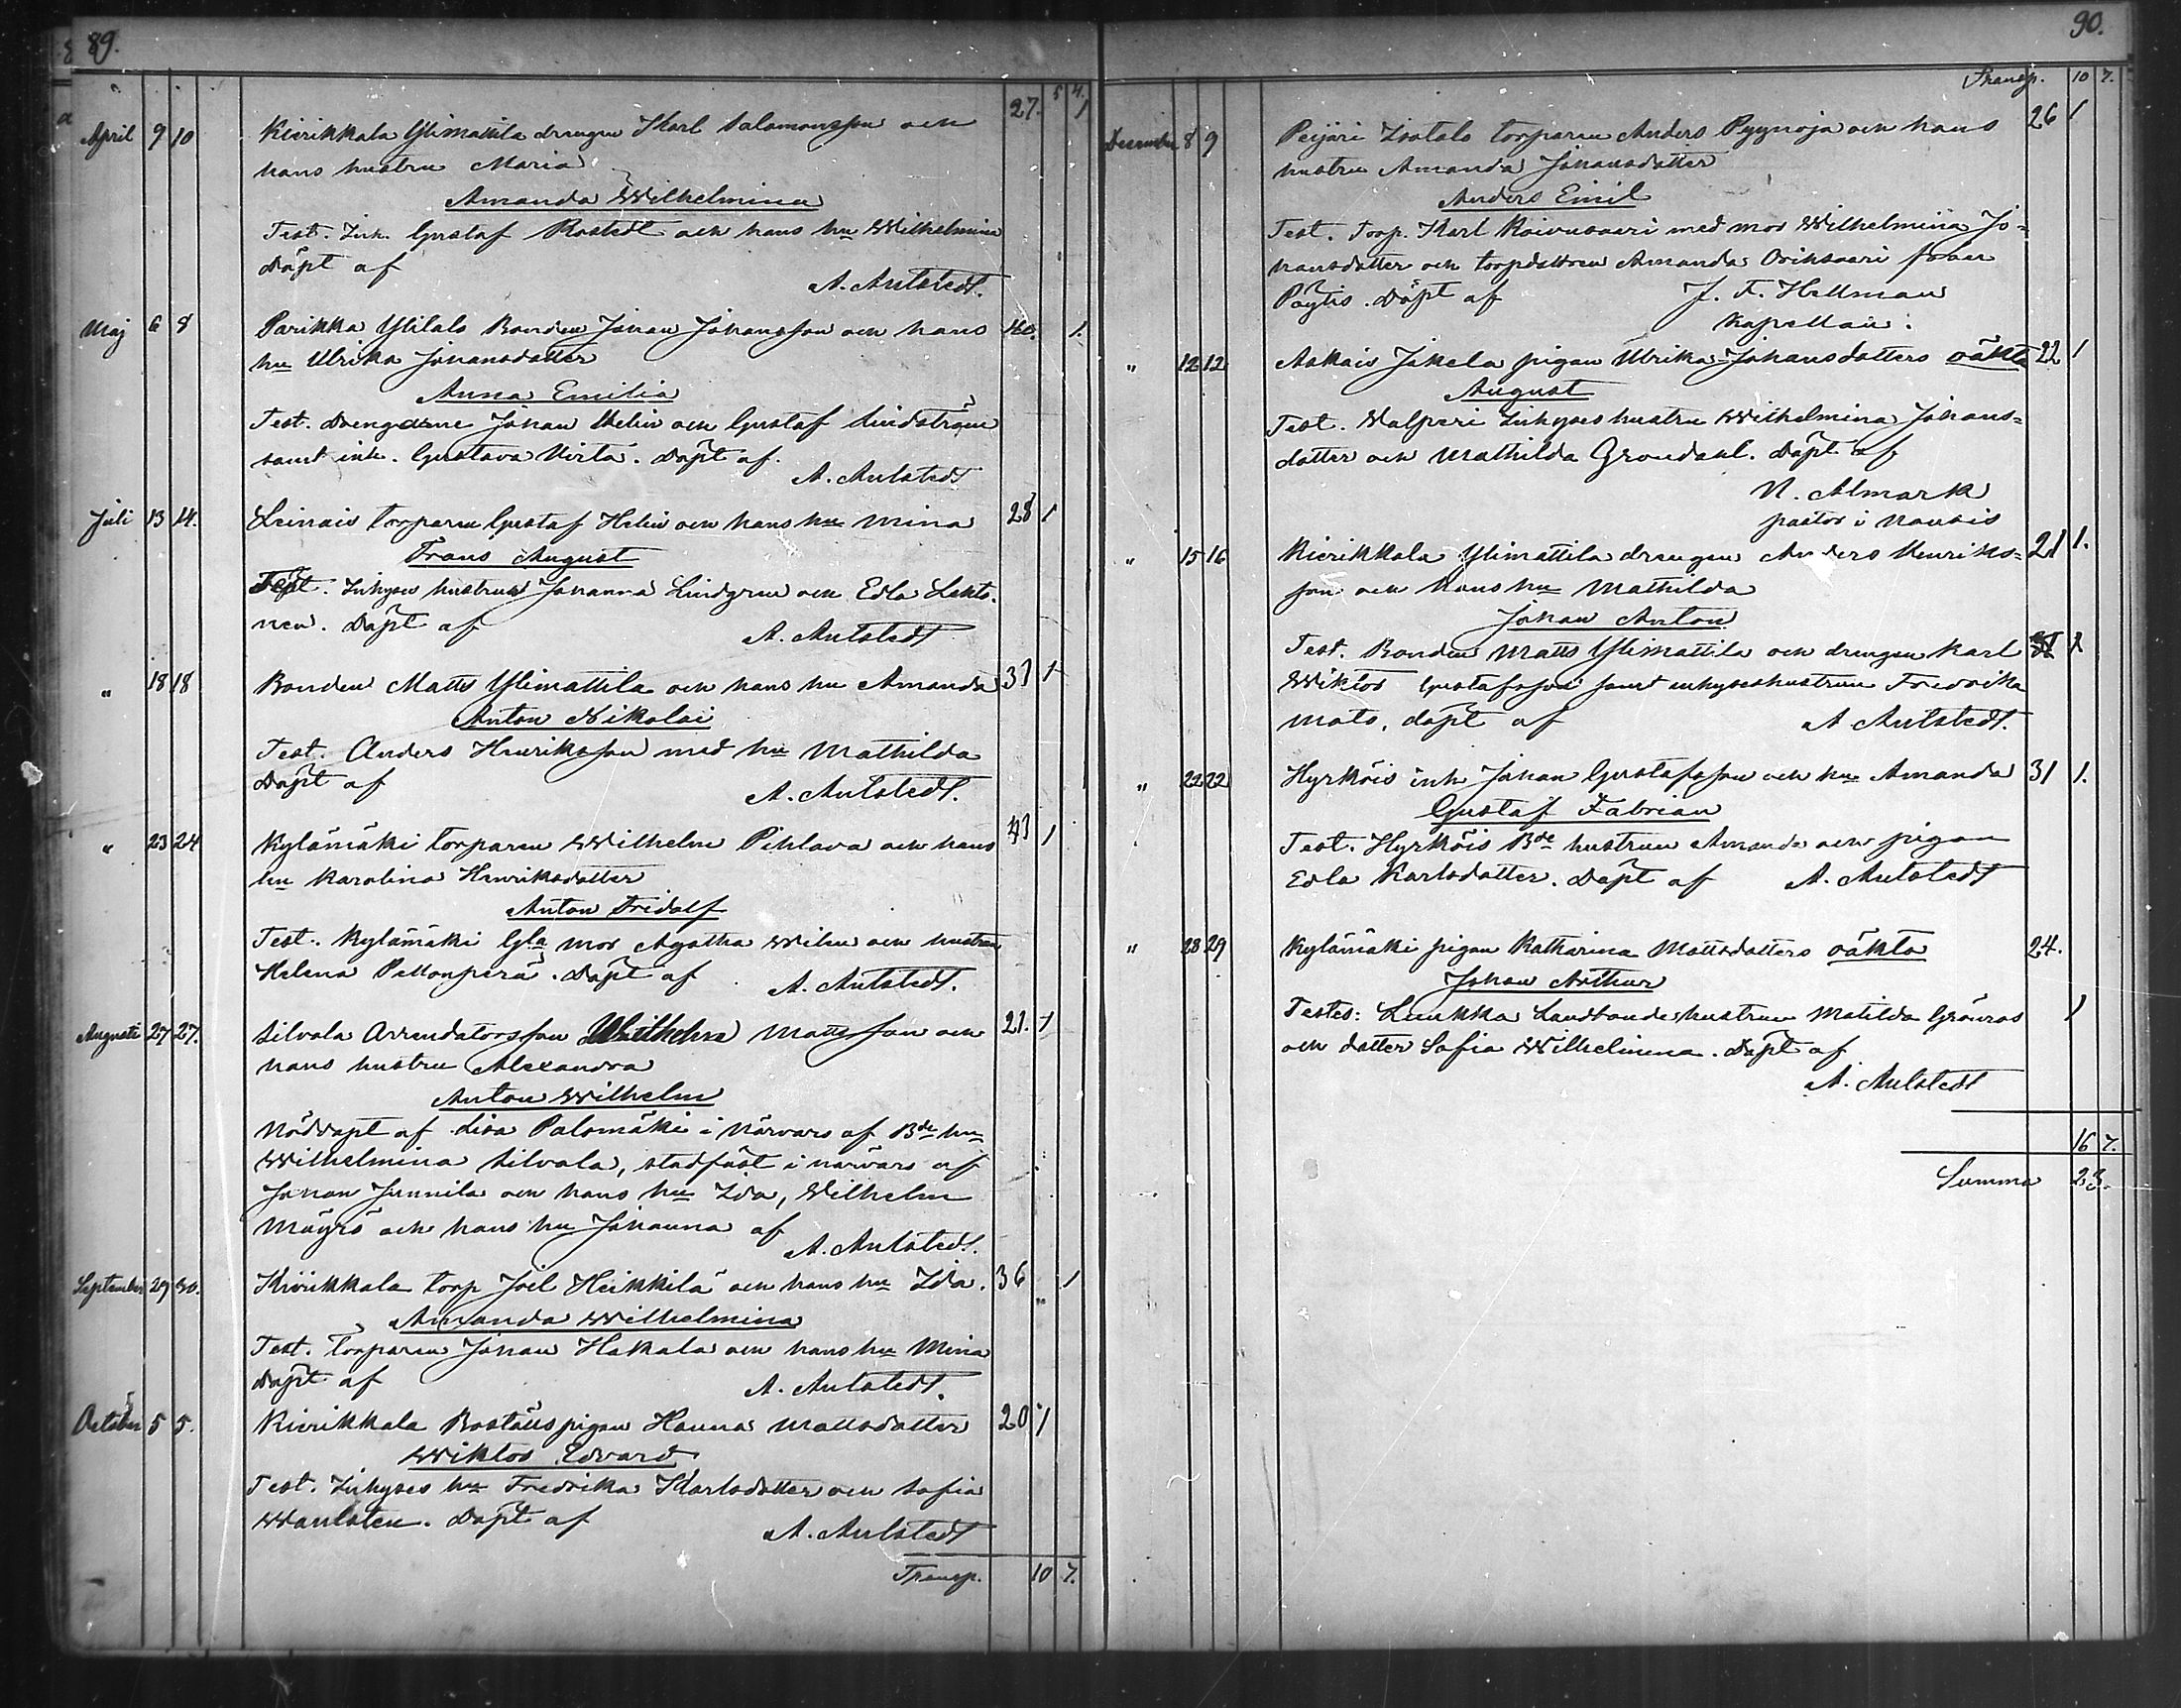 89.
5 4.
April 9 10 Kierikkala Ylimattila drengen Karl Salomonsson och 27. 1
hans hustru Maria
Amanda Wilhelmina
Test. Inh. Gustaf Rostedt och hans hu Wilhelmina
Döpt af
A. Aulstedt.
Maj 6 8 Parikka Ylitalo Bonden Johan Johansson och hans 40. 1.
hu Ulrika Johansdotter
Anna Emilia
Test. Drengarne Johan Helin och Gustaf Lindström
samt inh. Gustava Virta. Döpt af.
A. Aulstedt
Juli 13 14. Leinais torparen Gustaf Helin och hans hu Mina 28 1
Frans August
Test. Inhyses hustrun Johanna Lindgren och Edla Lehto-
nen. Döpt af
A. Aulstedt
" 18 18 Bonden Matts Ylimattila och hans hu Amanda 31 1
Anton Nikolai
Test. Anders Henriksson med hu Mathilda
Döpt af
A. Aulstedt.
" 23 24 Kylämäki torparen Wilhelm Pihlava och hans 43 1
hu Karolina Henriksdotter
Anton Fridolf
Test. Kylämäki Gla mor Agatha Wilen och hustru
Helena Peltonperä. Döpt af
A. Aulstedt.
Augusti 27 27. Silvola Arrendatorsson Wilhelm Mattsson och 21. 1
hans hustru Alexandra
Anton Wilhelm
Nöddöpt af Lisa Palomäki i närvaro af Bde hu
Wilhelmina Silvola, stadfäst i närvaro af
Johan Junnila och hans hu Ida, Wilhelm
Mäyrö och hans hu Johanna af
A. Aulstedt.
September 29 30. Kierikkala torp Joel Heikkilä och hans hu Ida. 36 1
Amanda Wilhelmina
Test. Torparen Johan Hakala och hans hu Mina
Döpt af
A. Aulstedt.
October 5 5. Kierikkala Roställs pigan Hanna Mattsdotter 20 1
Wiktor Edvard
Test. Inhyses hu Fredrika Karlsdotter och Sofia
Döpt af
A. Aulstedt
Transp. 10 7.
90.
Transp. 10 7.
December 8 9 Peijari Isotalo torparen Anders Pyynoja och hans 26 1
hustru Amanda Johansdotter
Anders Emil
Test. Torp. Karl Koivusaari med mor Wilhelmina Jo=
hansdotter och torpdottren Amanda Orihsaari från
Pöytis. Döpt af J. F. Hellman
Kapellan.
" 12 12 Askais Jakela pigan Ulrika Johansdotters oäkta 22 1
August
Test. Walperi Inhyses hustru Wilhelmina Johans=
dotter och Mathilda Grondahl. Döpt af
N. Almark
pastor i Nousis
" 15 16 Kierikkala Ylimattila drengen Anders Henriks= 21 1.
son och hans hu Mathilda
Johan Anton
Test. Bonden Matts Ylimattila och drengen Karl
Wiktor Gustafsson samt inhyseshustrun Fredrika
Mats, döpt af A Aulstedt.
" 22 22 Hyrköis inh Johan Gustafsson och hu Amanda 31 1.
Gustaf Fabrian
Test. Hyrköis Bde hustrun Amanda och pigan
Edla Karlsdotter. Döpt af A. Aulstedt
" 28 29 Kylämäki pigan Katharina Mattsdotters oäkta 24.
Johan Arthur
Testes: Luukka Landbondehustrun Matilda Grönros 1
och dotter Sofia Wilhelmina. Döpt af
A. Aulstedt
16 7.
Summa 23.